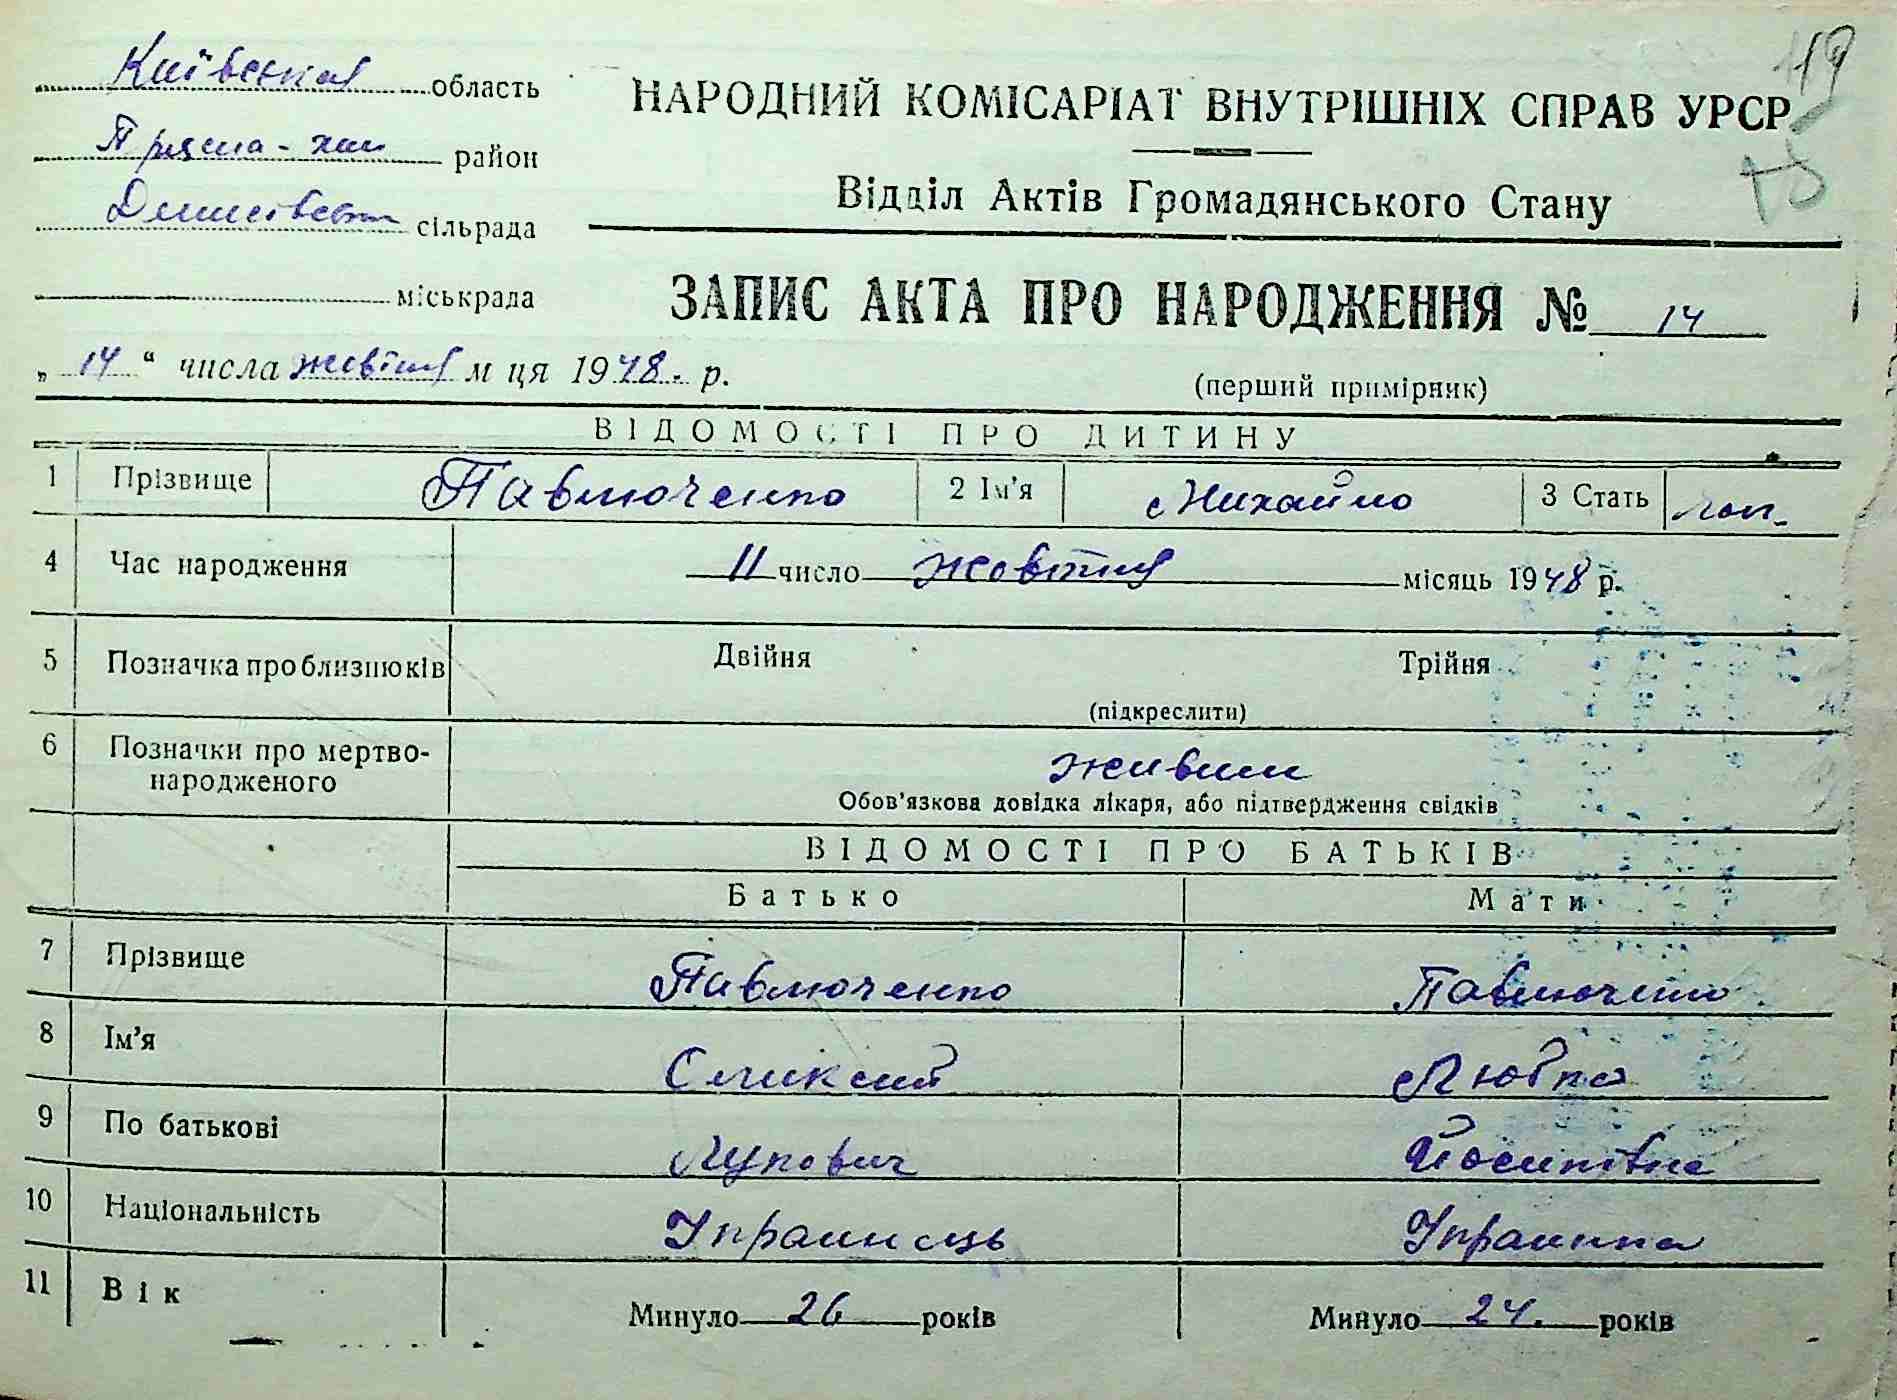 119
Київська область
район
сільрада
міськрада
НАРОДНИЙ КОМІСАРІАТ ВНУТРІШНІХ СПРАВ УРСР
Відділ Актів Громадянського Стану
ЗАПИС АКТА ПРО НАРОДЖЕННЯ № 14
„ 14 “ числа жовтня м ця 1948. р.
(перший примірник)
ВІДОМОСТІ ПРО ДИТИНУ
1 Прізвище Павлюченко 2 Ім'я Михайло 3 Стать чол.
4 Час народження 11 число жовтня місяць 1948 р.
5 Позначка про близнюків Двійня Трійня
(підкреслити)
6 Позначки про мертво-
народженого живий
Обов'язкова довідка лікаря, або підтвердження свідків
ВІДОМОСТІ ПРО БАТЬКІВ
Батько Мати
7 Прізвище Павлюченко Павлюченко
8 Ім'я Оликсій Любка
9 По батькові Лукович Йосипівна
10 Національність Українець Українка
11 Вік Минуло 26 років Минуло 24. років